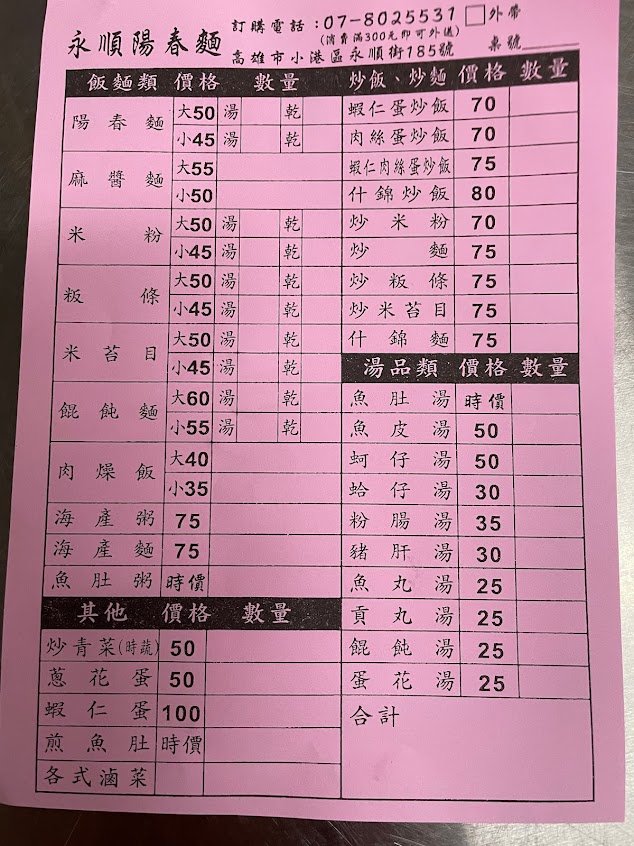 永順陽春麵
訂購電話:07-8025531 □外帶
(消費滿300元即可外送)
高雄市小港區永順街185號 桌號
飯麵類 價格 數量
陽春麵 大50 湯 乾
小45 湯 乾
麻醬麵 大55
小50
米粉 大50 湯 乾
小45 湯 乾
粄條 大50 湯 乾
小45 湯 乾
米苔目 大50 湯 乾
小45 湯 乾
餛飩麵 大60 湯 乾
小55 湯 乾
肉燥飯 大40
小35
海產粥 75
海產麵 75
魚肚粥 時價
其他 價格 數量
炒青菜(時蔬) 50
蔥花蛋 50
蝦仁蛋 100
煎魚肚 時價
各式滷菜
炒飯、炒麵 價格 數量
蝦仁蛋炒飯 70
肉絲蛋炒飯 70
蝦仁肉絲蛋炒飯 75
什錦炒飯 80
炒米粉 70
炒麵 75
炒粄條 75
炒米苔目 75
什錦麵 75
湯品類 價格 數量
魚肚湯 時價
魚皮湯 50
蚵仔湯 50
蛤仔湯 30
粉腸湯 35
豬肝湯 30
魚丸湯 25
貢丸湯 25
餛飩湯 25
蛋花湯 25
合計